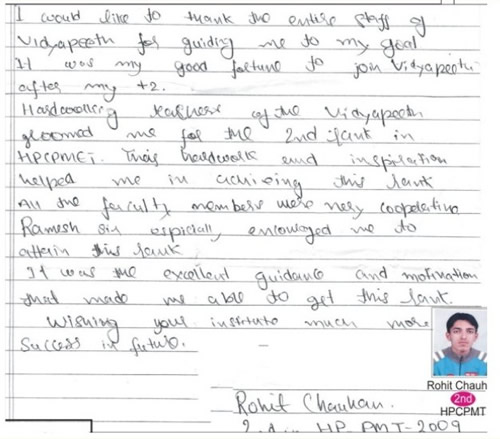 I would like to thank the entire staff of
Vidyapeeth for guiding me to my goal
It was my good fortune to join Vidyapeeth
after my +2.
Hardworking teachers of the Vidyapeeth
groomed me for the 2nd rank in
HPCPMET. Their hardwork and inspiration
helped me in achieving this rank
All the faculty members were very cooperative
Ramesh sir espicially encouraged me to
attain this rank
It was the excellent guidance and motivation
that made me able to get this rank.
Wishing your institute much more
Success in future.
Rohit Chauh
2nd
HPCPMT
Rohit Chauhan.
2nd in HP PMT-2009